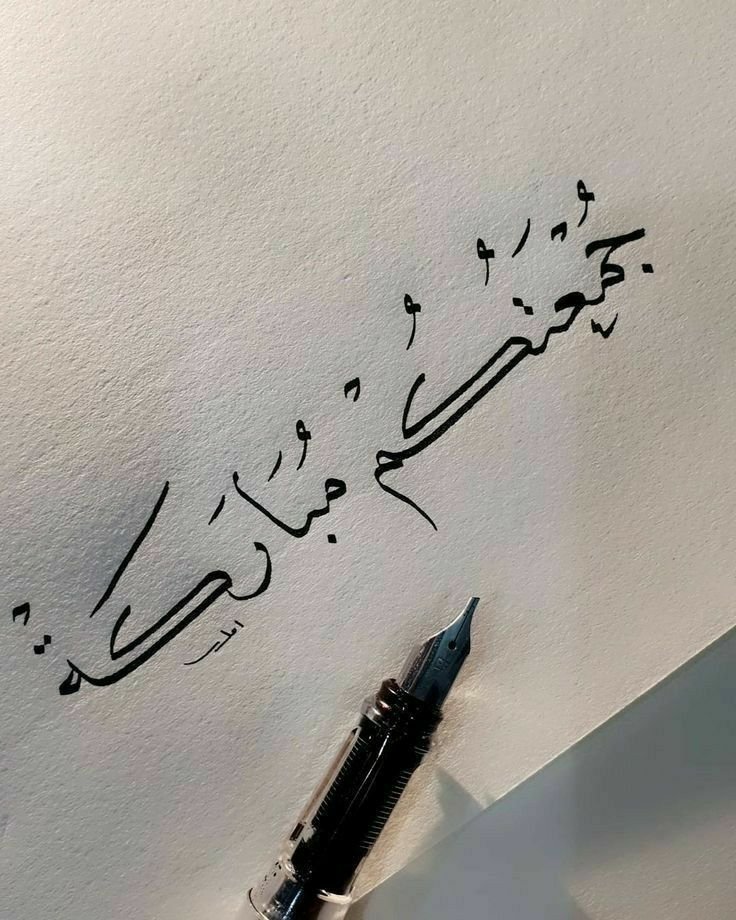 جُمُعَتُكُمْ مُبَارَكَةْ